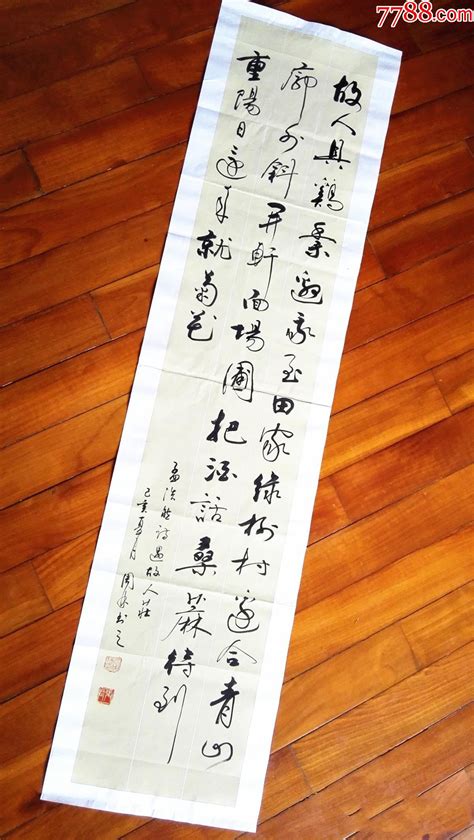 7788.com
故人具鷄黍邀我至田家绿树村邊合青山
廓外斜开軒面場圃把酒話桑蔴待到
重陽日還来就菊花
孟浩然诗過故人莊
己亥夏月 周 书之